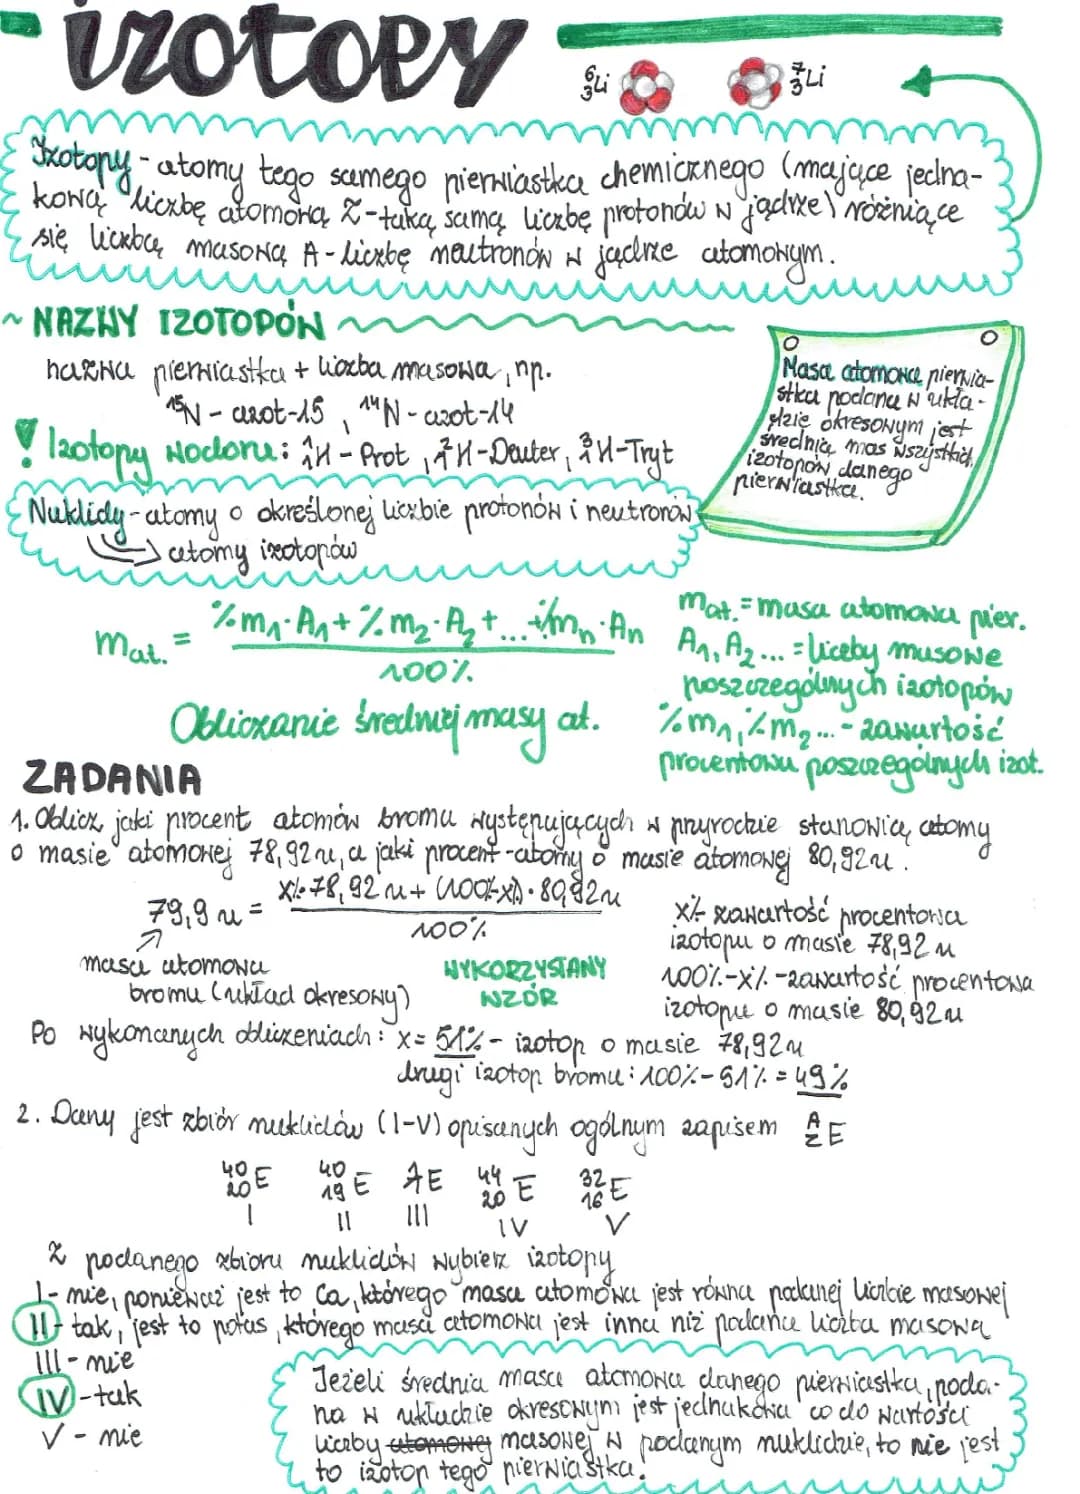 izotopy
⁶₃Li ⁷₃Li
Izotopy - atomy tego samego pierwiastka chemicznego (mające jedna-
kową liczbę atomową Z - taką samą liczbę protonów w jądrze) różniące
się liczbą masową A - liczbę neutronów w jądrze atomowym.
~ NAZWY IZOTOPÓW
nazwa pierwiastka + liczba masowa, np.
¹⁵N - azot-15, ¹⁴N - azot-14
! Izotopy wodoru: ¹₁H - Prot, ²₁H - Deuter, ³₁H - Tryt
Masa atomowa pierwia-
stka podana w ukła-
dzie okresowym jest
średnią mas wszystkich
izotopów danego
pierwiastka.
Nuklidy - atomy o określonej liczbie protonów i neutronów
atomy izotopów
mat. = %m₁·A₁ + %m₂·A₂ + ... + %mₙ·Aₙ
100%
Obliczanie średniej masy at.
mat. = masa atomowa pier.
A₁, A₂ ... = liczby masowe
poszczególnych izotopów
%m₁, %m₂ ... - zawartość
procentowa poszczególnych izot.
ZADANIA
1. Oblicz jaki procent atomów bromu występujących w przyrodzie stanowią atomy
o masie atomowej 78,92u, a jaki procent - atomy o masie atomowej 80,92u.
79,9 u = x%·78,92 u + (100%-x%)·80,92u
100%
masa atomowa
bromu (układ okresowy)
WYKORZYSTANY
WZÓR
x% - zawartość procentowa
izotopu o masie 78,92 u
100%-x% - zawartość procentowa
izotopu o masie 80,92u
Po wykonanych obliczeniach: x = 51% - izotop o masie 78,92u
drugi izotop bromu: 100% - 51% = 49%
2. Dany jest zbiór nuklidów (I-V) opisanych ogólnym zapisem ᴬ_Z E
⁴⁰₂₀E ⁴⁰₁₉E ⁷E ⁴⁴₂₀E ³²₁₆E
I II III IV V
Z podanego zbioru nuklidów wybierz izotopy
I - nie, ponieważ jest to Ca, którego masa atomowa jest równa podanej liczbie masowej
II - tak, jest to potas, którego masa atomowa jest inna niż podana liczba masowa
III - nie
IV - tak
V - nie
Jeżeli średnia masa atomowa danego pierwiastka, poda-
na w układzie okresowym jest jednakowa co do wartości
liczby atomowej masowej w podanym nuklidzie, to nie jest
to izotop tego pierwiastka.